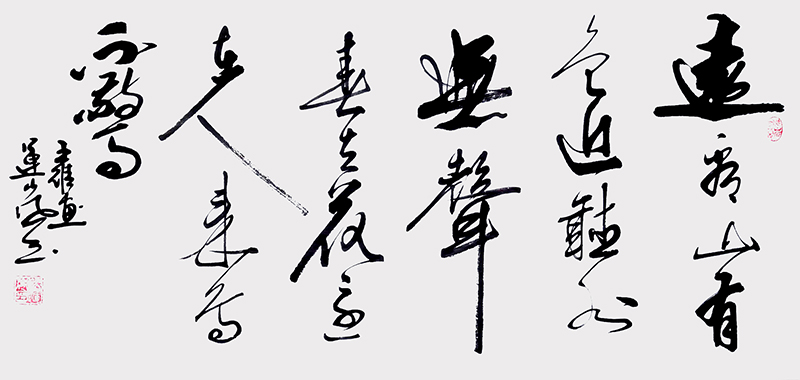 遠看山有
色近聽水
無聲
春去花還
在人來鳥
不驚
王維畫